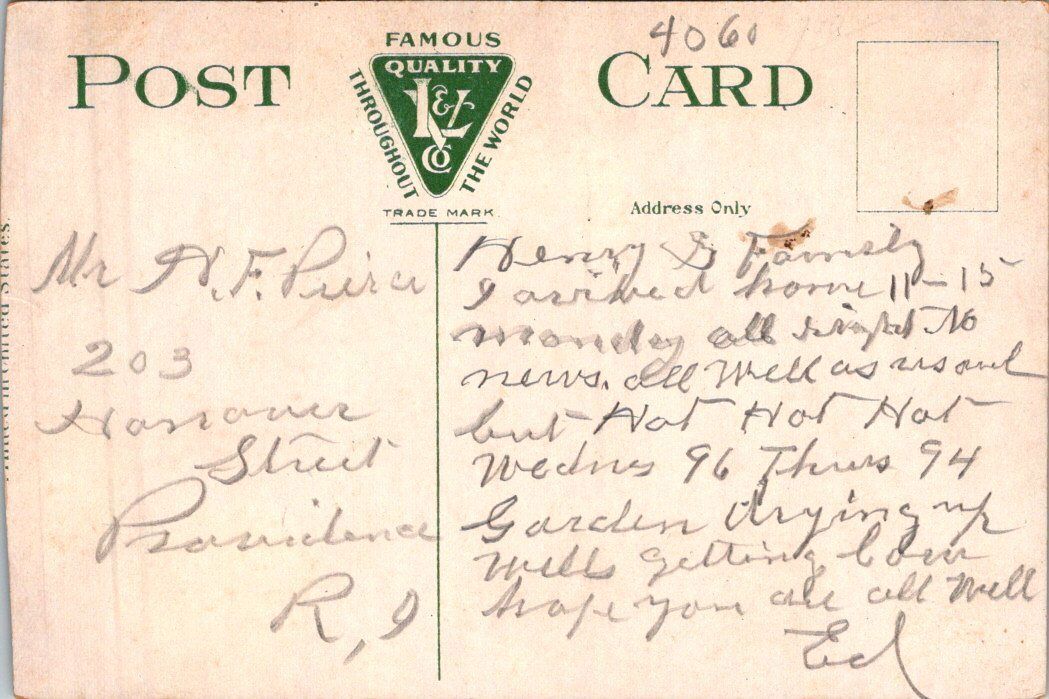 4060
POST CARD
FAMOUS
QUALITY
THROUGHOUT
THE WORLD
L & Co
TRADE MARK
Address Only
Printed in United States.
Mr H. F. Pierce
203
Hanover
Street
Providence
R, I
Henry & Family
I arrived home 11-15
monday all right No
news. all Well as usual
but Hot Hot Hot
Wednes 96 Thurs 94
Garden drying up
Wells getting low
hope you are all Well
Ed